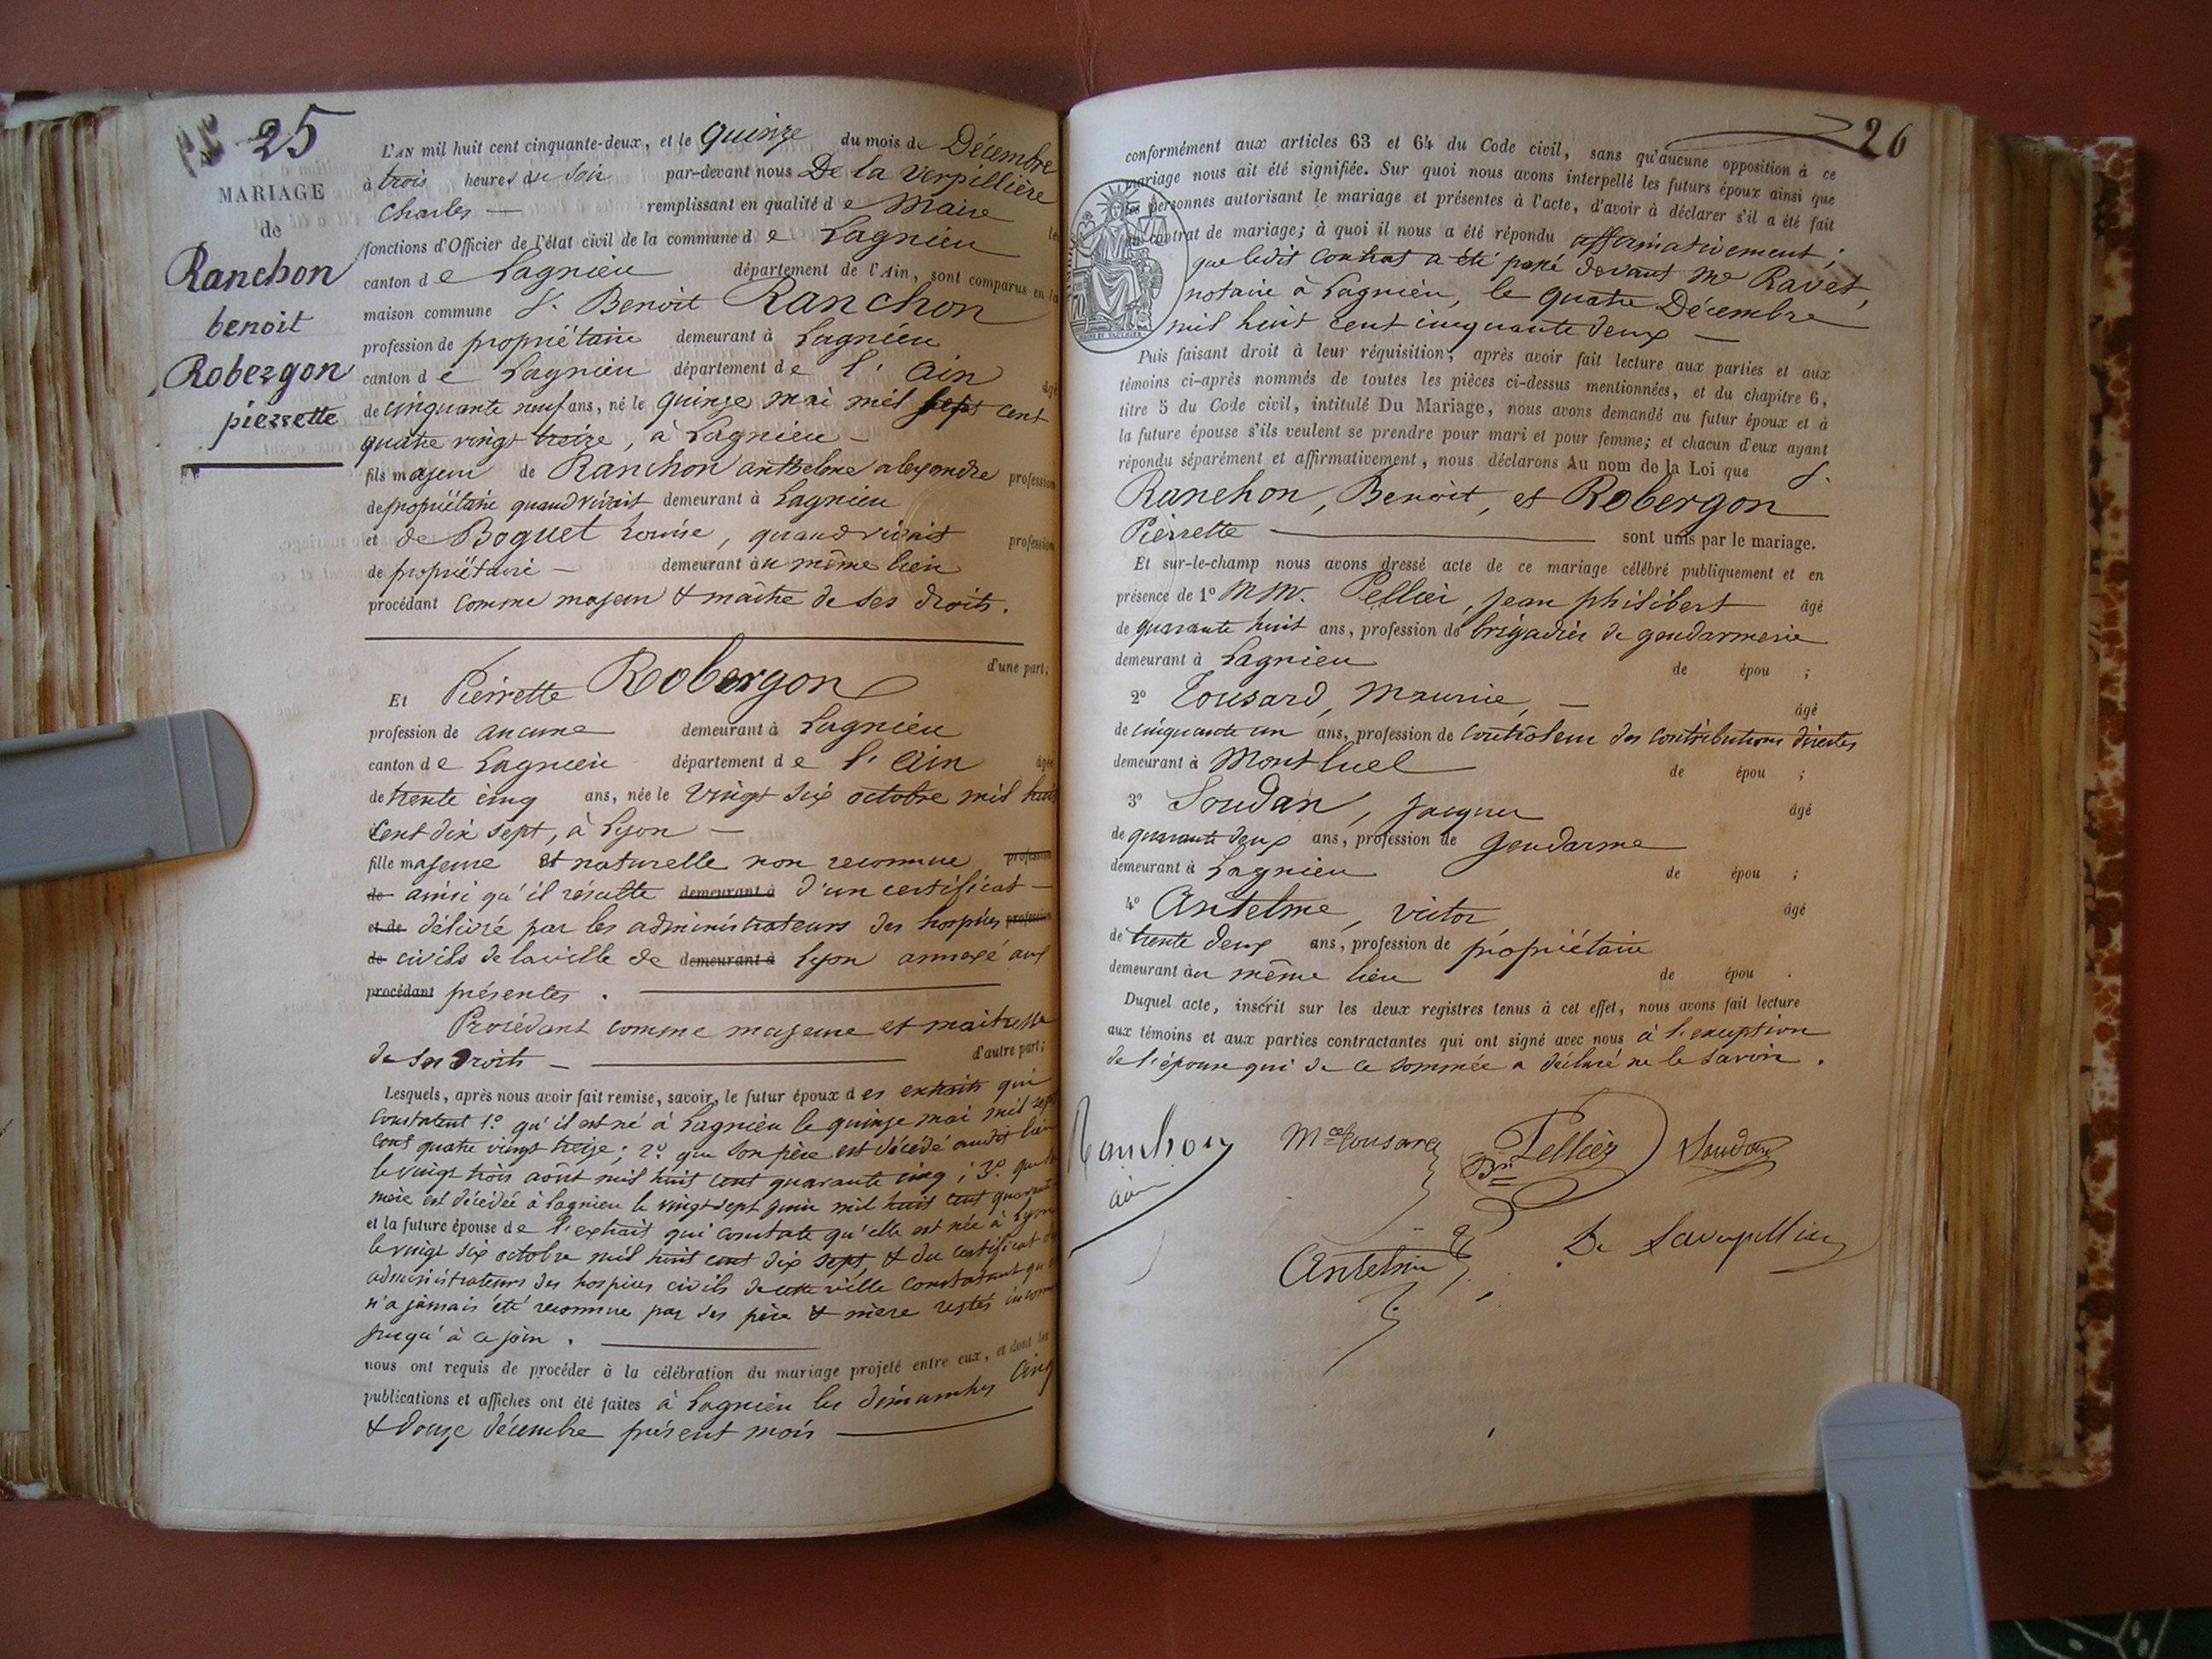 25
MARIAGE
de
Ranchon
benoit
Robergon
pierrette
L'AN mil huit cent cinquante-deux, et le quinze du mois de Décembre
à trois heures du soir par-devant nous De la Verpillière
Charles — remplissant en qualité de Maire les
fonctions d'Officier de l'état civil de la commune de Lagnieu
canton de Lagnieu département de l'Ain, sont comparus en la
maison commune S. Benoit Ranchon
profession de propriétaire demeurant à Lagnieu
canton de Lagnieu département de l'Ain âgé
de cinquante neuf ans, né le quinze mai mil sept cent
quatre vingt treize, à Lagnieu —
fils majeur de Ranchon anthelme alexandre profession
de propriétaire quand vivait demeurant à Lagnieu
et de Boguet Louise, quand vivait profession
de propriétaire — demeurant au même lieu
procédant comme majeur & maître de ses droits.
d'une part;
Et Pierrette Robergon
profession de aucune demeurant à Lagnieu
canton de Lagnieu département de l'Ain âgée
de trente cinq ans, née le vingt six octobre mil huit
cent dix sept, à Lyon —
fille majeure et naturelle non reconnue profession
de ainsi qu'il résulte demeurant à d'un certificat —
et de délivré par les administrateurs des hospices profession
de civils de la ville de demeurant à Lyon annexé aux
procédant présentes.
Procédant comme majeure et maitresse
de ses droits — d'autre part;
Lesquels, après nous avoir fait remise, savoir, le futur époux des extraits qui
constatent 1.° qu'il est né à Lagnieu le quinze mai mil sept
cent quatre vingt treize; 2.° que son père est décédé audit lieu
le vingt trois août mil huit cent quarante cinq; 3.° que sa
mère est décédée à Lagnieu le vingt sept juin mil huit cent quarante
et la future épouse de l'extrait qui constate qu'elle est née à Lyon
le vingt six octobre mil huit cent dix sept, & du certificat des
administrateurs des hospices civils de cette ville constatant qu'elle
n'a jamais été reconnue par ses père & mère restés inconnus
jusqu'à ce jour.
nous ont requis de procéder à la célébration du mariage projeté entre eux, et dont les
publications et affiches ont été faites à Lagnieu les dimanches cinq
& douze décembre présent mois
26
conformément aux articles 63 et 64 du Code civil, sans qu'aucune opposition à ce
mariage nous ait été signifiée. Sur quoi nous avons interpellé les futurs époux ainsi que
les personnes autorisant le mariage et présentes à l'acte, d'avoir à déclarer s'il a été fait
un contrat de mariage; à quoi il nous a été répondu affirmativement;
que ledit contrat a été passé devant Me Ravet,
notaire à Lagnieu, le quatre Décembre
mil huit cent cinquante deux —
Puis faisant droit à leur réquisition, après avoir fait lecture aux parties et aux
témoins ci-après nommés de toutes les pièces ci-dessus mentionnées, et du chapitre 6,
titre 5 du Code civil, intitulé Du Mariage, nous avons demandé au futur époux et à
la future épouse s'ils veulent se prendre pour mari et pour femme; et chacun d'eux ayant
répondu séparément et affirmativement, nous déclarons Au nom de la Loi que S.
Ranchon, Benoit, et Robergon
Pierrette — sont unis par le mariage.
Et sur-le-champ nous avons dressé acte de ce mariage célébré publiquement et en
présence de 1° MM. Pellier, jean philibert âgé
de quarante huit ans, profession de brigadier de gendarmerie
demeurant à Lagnieu de épou ;
2° Tousard, Maurice, — âgé
de cinquante un ans, profession de contrôleur des contributions directes
demeurant à Montluel de épou ;
3° Soudan, jacques âgé
de quarante deux ans, profession de gendarme
demeurant à Lagnieu de épou ;
4° Antelme, victor âgé
de trente deux ans, profession de propriétaire
demeurant au même lieu de épou .
Duquel acte, inscrit sur les deux registres tenus à cet effet, nous avons fait lecture
aux témoins et aux parties contractantes qui ont signé avec nous à l'exception
de l'épouse qui de ce sommée a déclaré ne le savoir.
Ranchon Mce Tousard Pellier Soudan
ainé Br
Antelme De Laverpillière